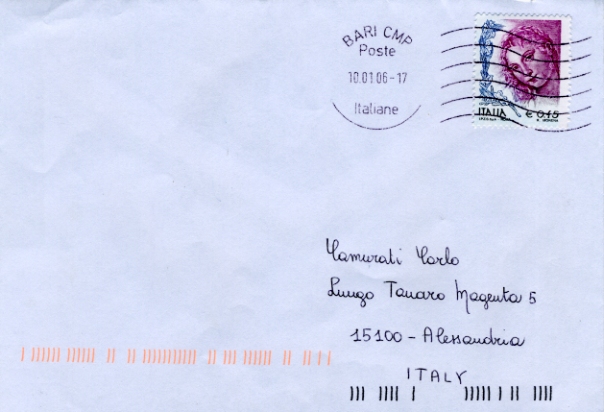 BARI CMP
Poste
10.01.06-17
Italiane
ITALIA € 0,45
Camurati Carlo
Lungo Tanaro Magenta 5
15100 - Alessandria
ITALY